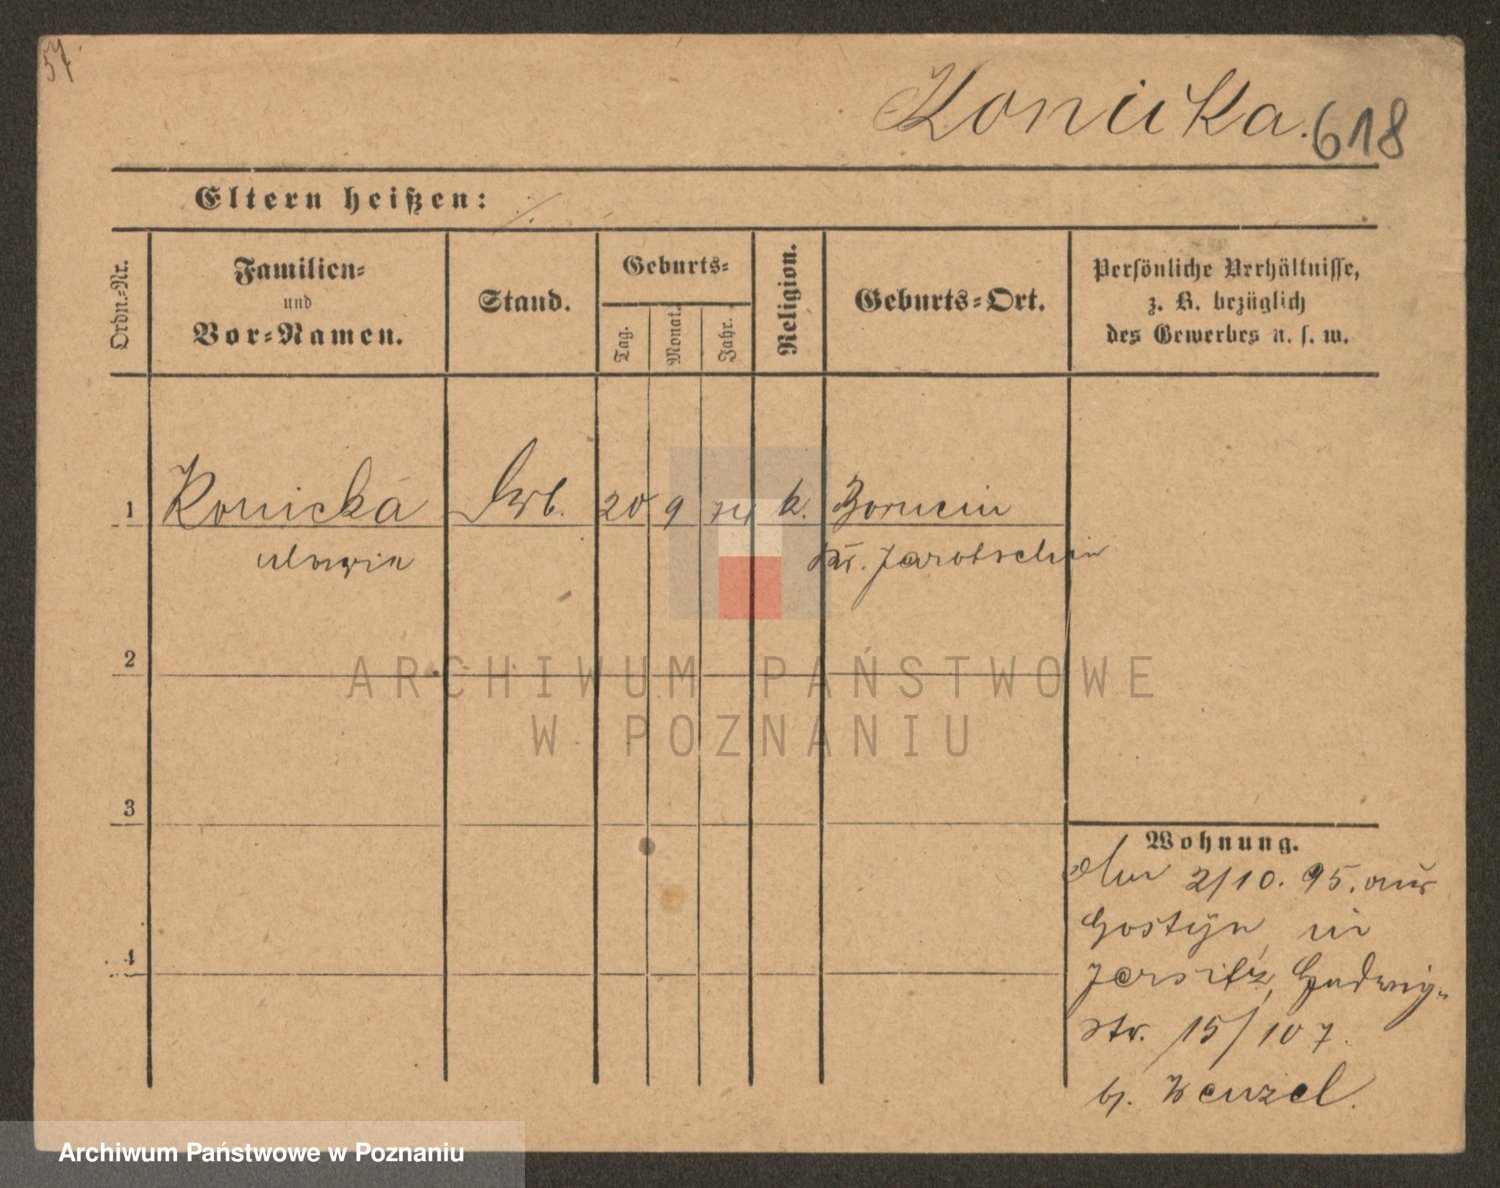 57.
Konicka. 618
Eltern heißen: ./.
Ordn.-Nr.
Familien-
und
Vor-Namen.
Stand.
Geburts-
Tag.
Monat.
Jahr.
Religion.
Geburts-Ort.
Persönliche Verhältnisse,
z. B. bezüglich
des Gewerbes u. s. w.
1 Konicka 20 9 74 k. Borucin
Maria Kr. Jarotschin
2
ARCHIWUM PAŃSTWOWE
W POZNANIU
3
Wohnung.
2/10. 95. aus
Gostyn in
4
Jersitz, Hedwig-
str. 15/107.
b. Wenzel.
Archiwum Państwowe w Poznaniu